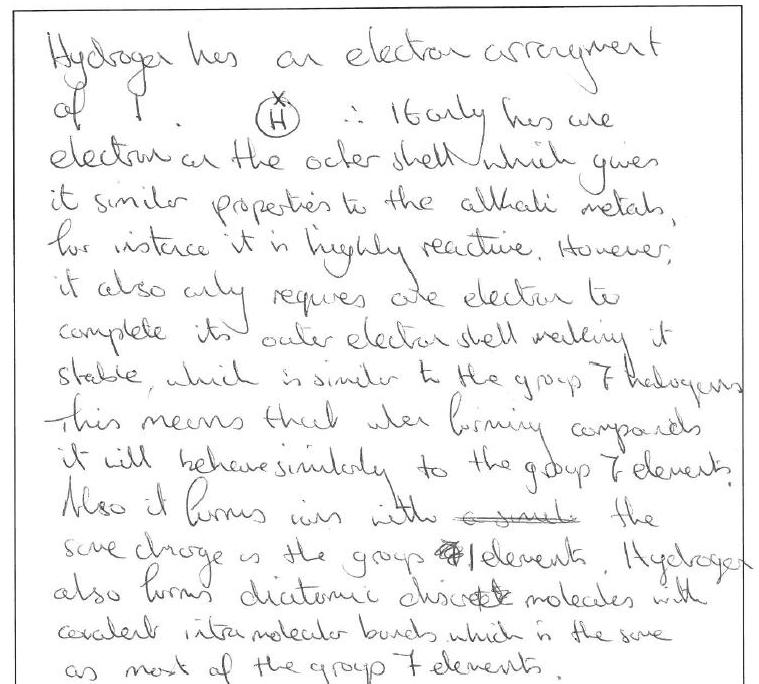 Hydrogen has an electron arrangment
of 1. H x ∴ It only has one
electron on the outer shell which gives
it similar properties to the alkali metals,
for instance it is highly reactive. However,
it also only requires one electron to
complete its outer electron shell making it
stable, which is similar to the group 7 halogens
This means that when forming compounds
it will behave similarly to the group 7 elements.
Also it forms ions with the
same charge as the group 1 elements. Hydrogen
also forms diatomic discrete molecules with
covalent intra molecular bonds which is the same
as most of the group 7 elements.